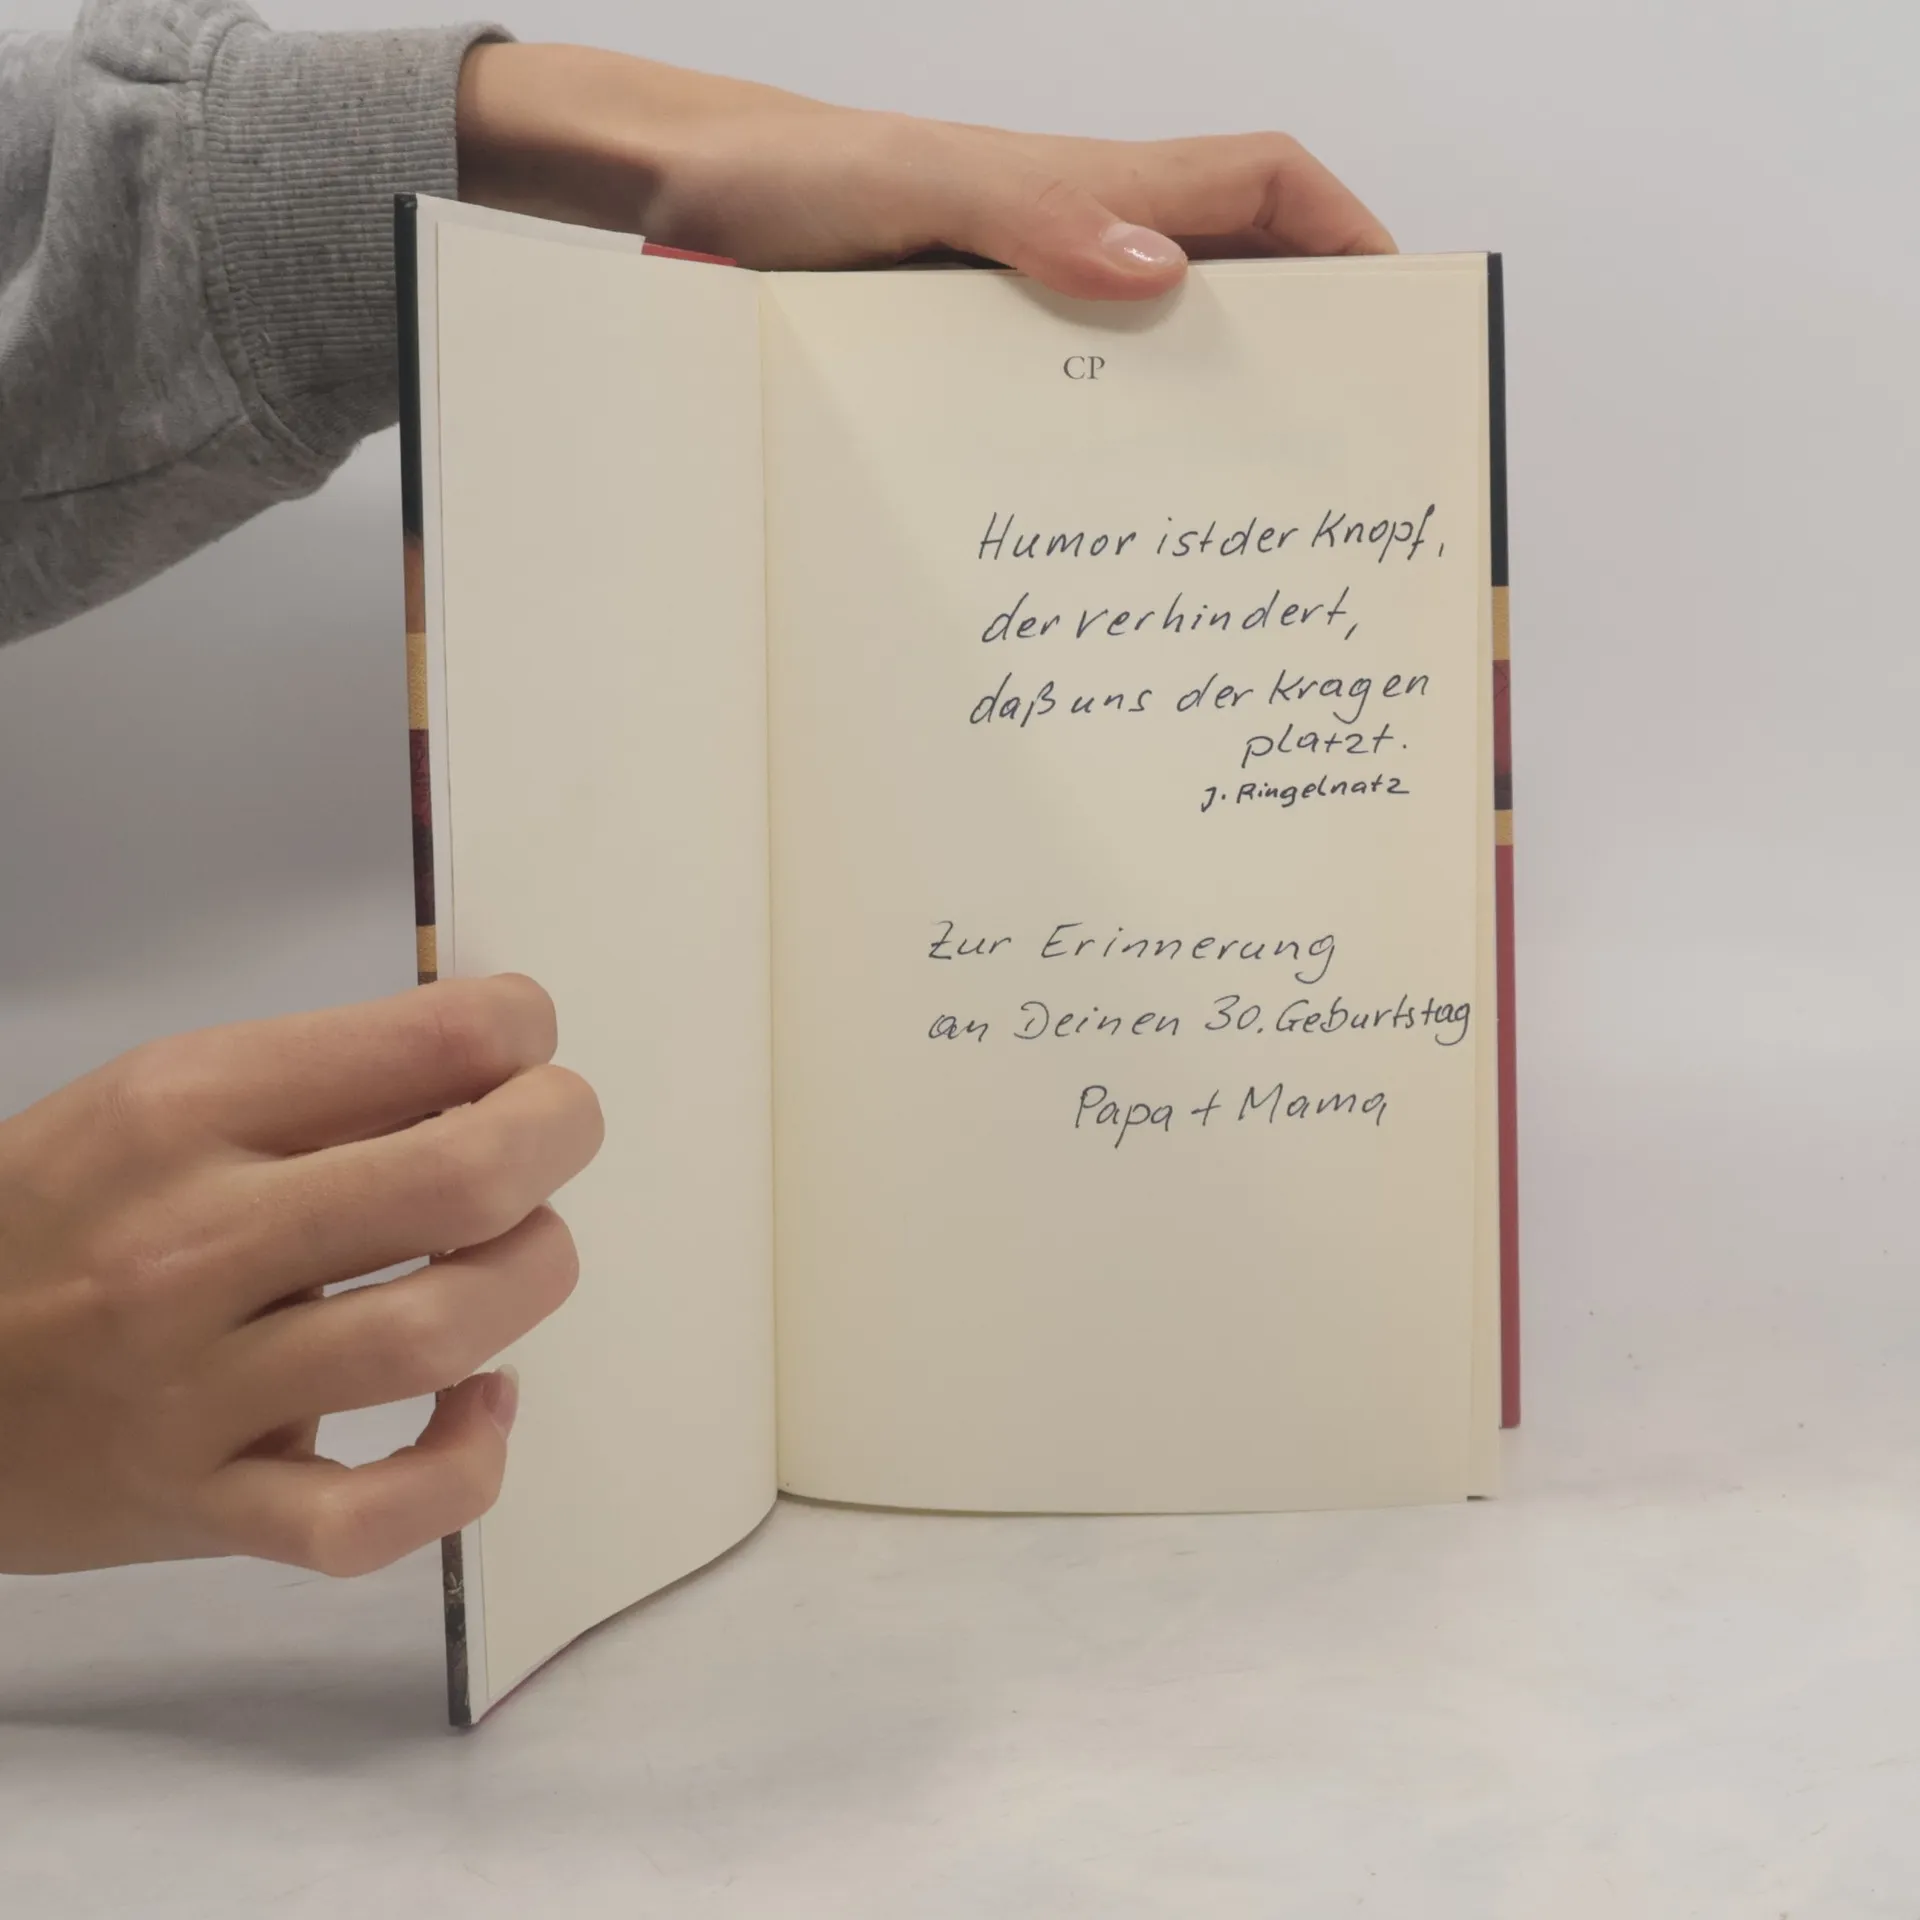 CP
Humor ist der Knopf,
der verhindert,
daß uns der Kragen
platzt.
J. Ringelnatz
Zur Erinnerung
an Deinen 30. Geburtstag
Papa + Mama